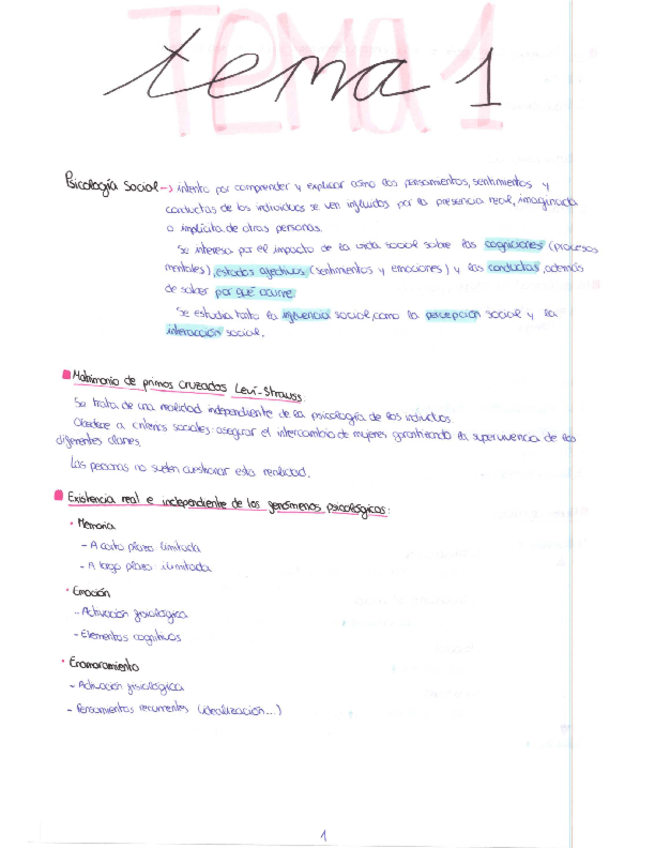 TEMA 1
tema 1
Psicología Social → intento por comprender y explicar cómo los pensamientos, sentimientos y
conductas de los individuos se ven influidos por la presencia real, imaginada
o implícita de otras personas.
Se interesa por el impacto de la vida social sobre las cogniciones (procesos
mentales), estados afectivos (sentimientos y emociones) y las conductas, además
de saber por qué ocurre.
Se estudia tanto la influencia social, como la percepción social y la
interacción social.
Matrimonio de primos cruzados Levi-Strauss:
Se trata de una realidad independiente de la psicología de los individuos.
Obedece a criterios sociales: asegurar el intercambio de mujeres garantizando la supervivencia de los
diferentes clanes.
Las personas no suelen cuestionar esta realidad.
Existencia real e independiente de los fenómenos psicológicos:
· Memoria
- A corto plazo: limitada
- A largo plazo: ilimitada
· Emoción
- Activación fisiológica
- Elementos cognitivos
· Enamoramiento
- Activación fisiológica
- Pensamientos recurrentes (idealización...)
1